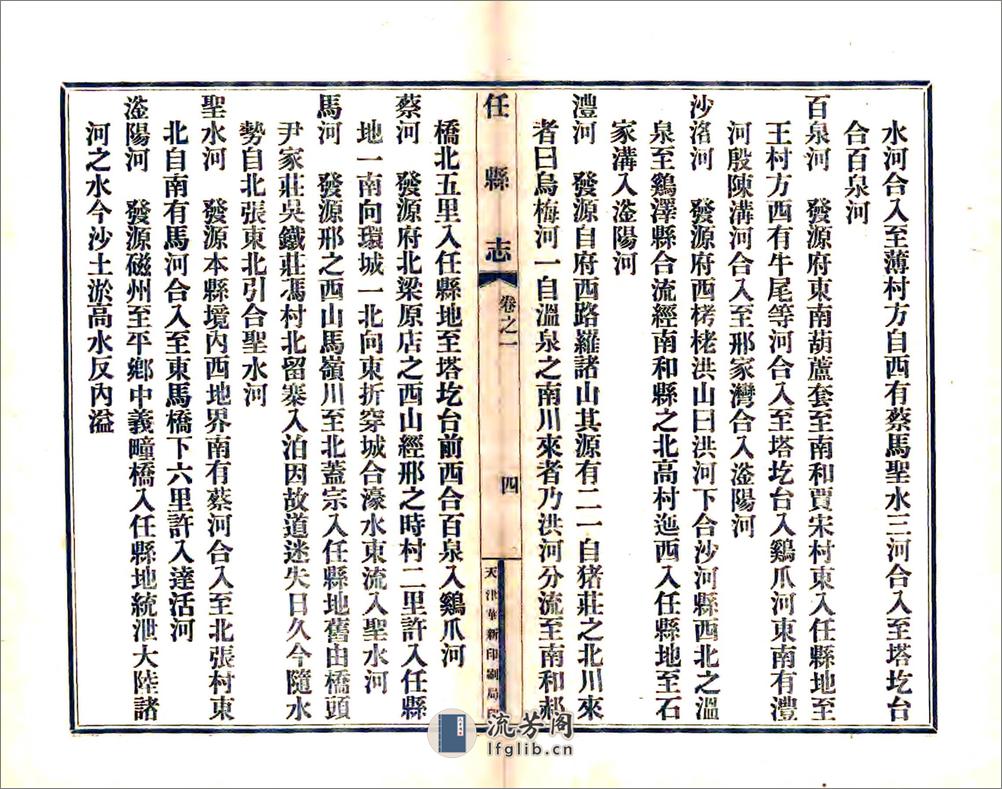 水河合入至薄村方自西有蔡馬聖水三河合入至塔圪台
合百泉河
百泉河　發源府東南葫蘆套至南和賈宋村東入任縣地至
王村方西有牛尾等河合入至塔圪台入鷄爪河東南有澧
河殷陳溝河合入至邢家灣合入滏陽河
沙洺河　發源府西栲栳洪山曰洪河下合沙河縣西北之溫
泉至鷄澤縣合流經南和縣之北高村迤西入任縣地至石
家溝入滏陽河
澧河　發源自府西路羅諸山其源有二一自猪莊之北川來
者曰烏梅河一自溫泉之南川來者乃洪河分流至南和郝
任縣志
卷之一
四
天津華新印刷局
橋北五里入任縣地至塔圪台前西合百泉入鷄爪河
蔡河　發源府北梁原店之西山經邢之時村二里許入任縣
地一南向環城一北向東折穿城合濠水東流入聖水河
馬河　發源邢之西山馬嶺川至北蓋宗入任縣地舊由橋頭
尹家莊吳鐵莊馮村北留寨入泊因故道迷失日久今隨水
勢自北張東北引合聖水河
聖水河　發源本縣境內西地界南有蔡河合入至北張村東
北自南有馬河合入至東馬橋下六里許入達活河
滏陽河　發源磁州至平鄉中義疃橋入任縣地統泄大陸諸
河之水今沙土淤高水反內溢
流芳阁
lfglib.cn